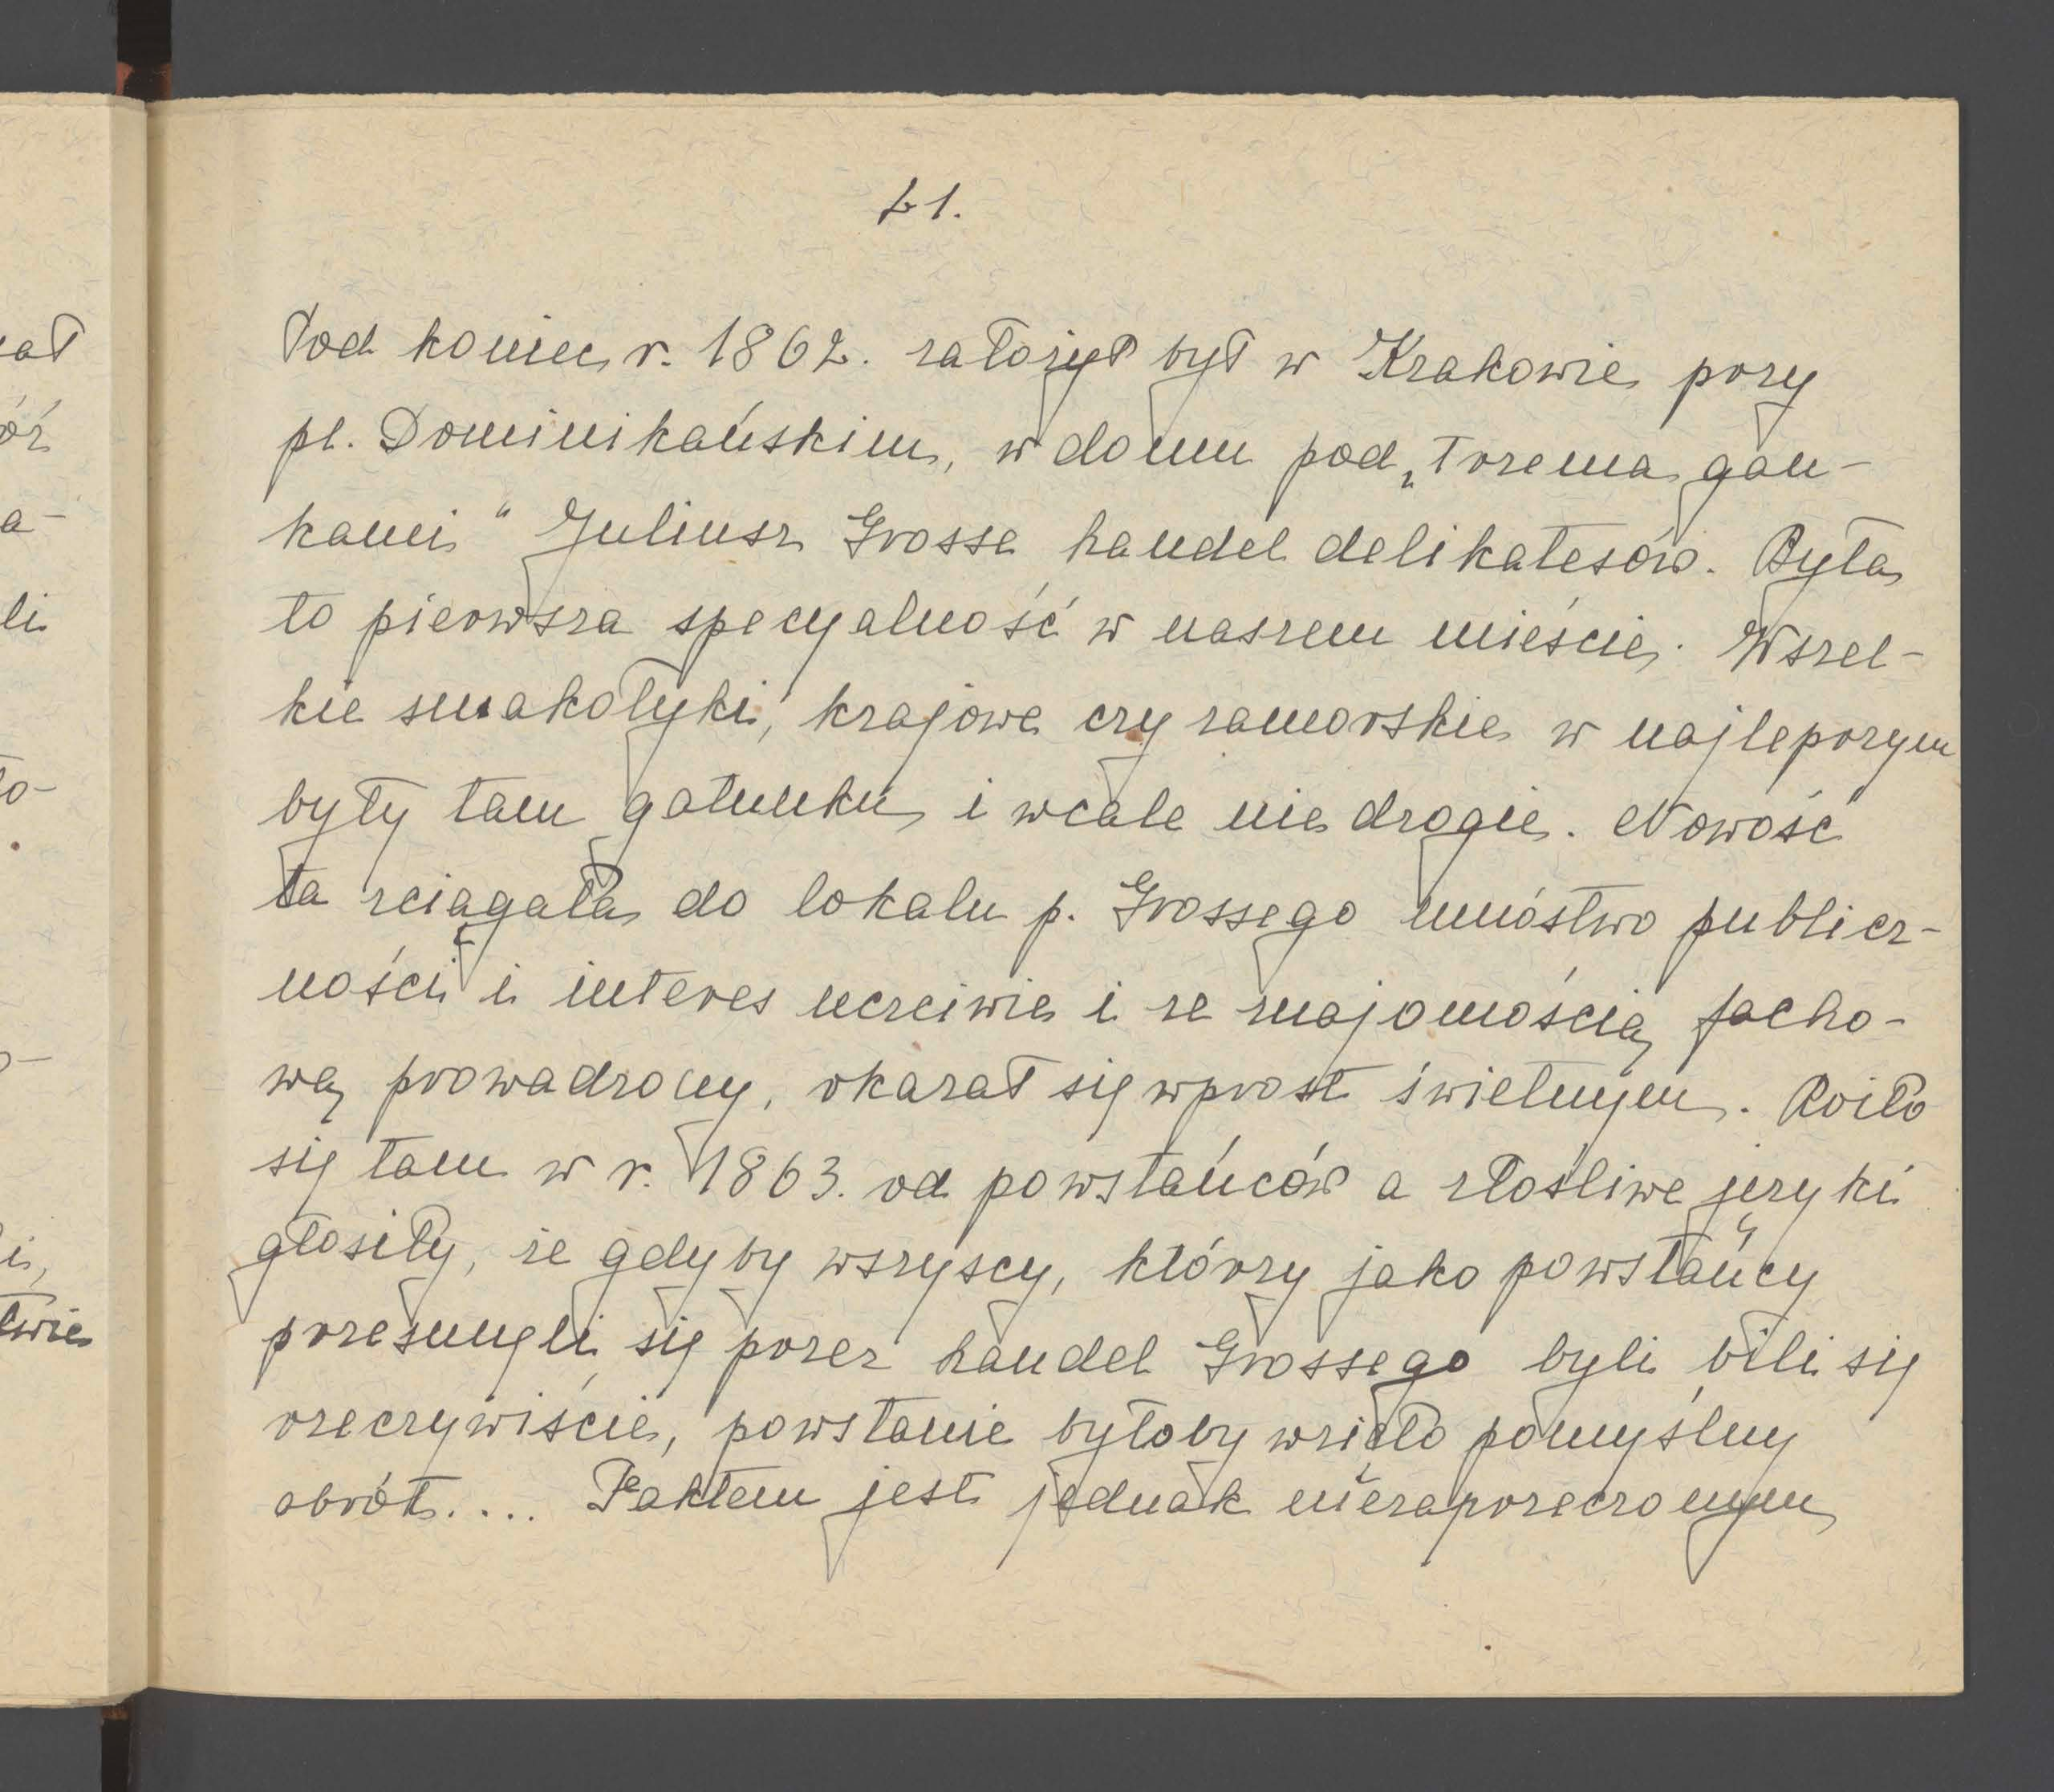 21.
Pod koniec r. 1862. założył był w Krakowie przy
pl. Dominikańskim, w domu pod „Trzema gan-
kami" Juliusz Grosse handel delikatesów. Była
to pierwsza specyalność w naszem mieście. Wszel-
kie smakołyki, krajowe czy zamorskie w najlepszym
były tam gatunku i wcale nie drogie. Nowość
ta ściągała do lokalu p. Grossego mnóstwo publicz-
ności i interes uczciwie i ze znajomością facho-
wą prowadzony, okazał się wprost świetnym. Roiło
się tam w r. 1863. od powstańców a złośliwe języki
głosiły, że gdyby wszyscy, którzy jako powstańcy
przesunęli się przez handel Grossego byli bili się
rzeczywiście, powstanie byłoby wzięło pomyślny
obrót.... Faktem jest jednak niezaprzeczonym
ał
li
twie